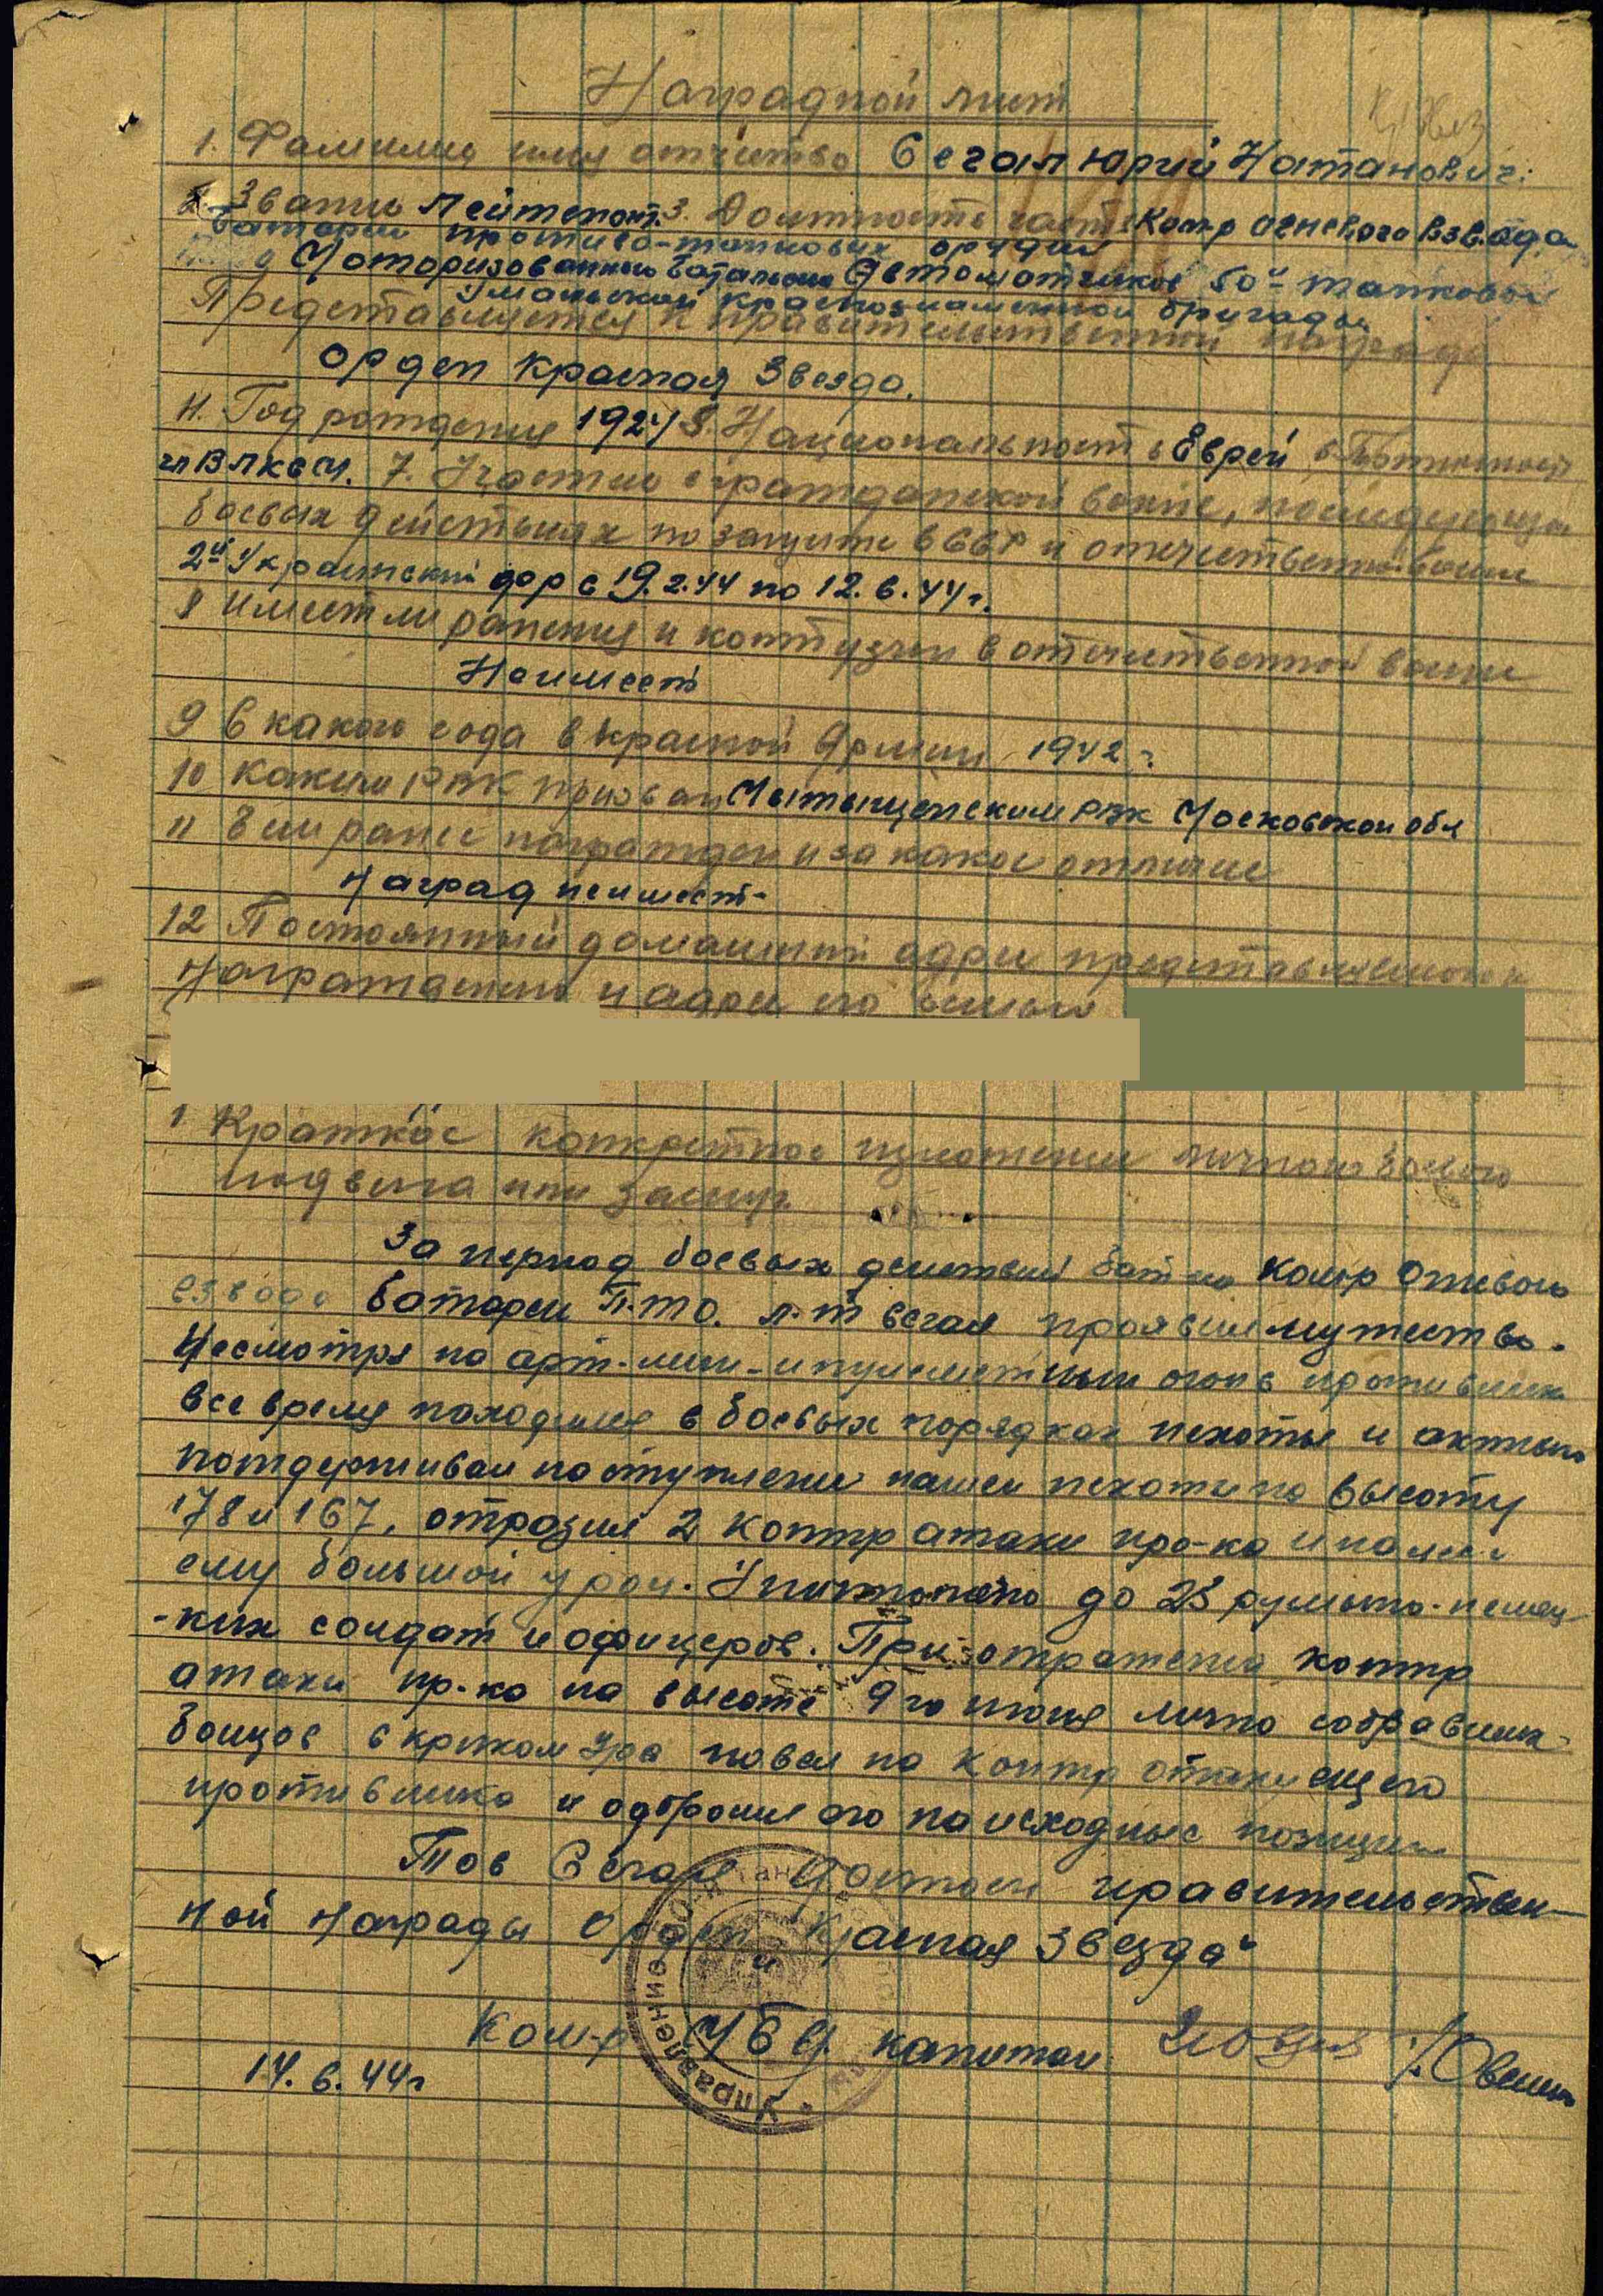 Наградной лист
1. Фамилия имя отчество Сегал Юрий Натанович.
2. Звание Лейтенант. 3. Должность часть Ком-р огневого взвода
батареи противо-танковых орудий
Моторизованного батальона Автоматчиков 50й танковой
Уманьской краснознаменной бригады.
Представляется к правительственной награде
орден Красная Звезда.
4. Год рождения 1924 5. Национальность Еврей 6. Партийность
чл ВЛКСМ. 7. Участие в гражданской войне, последующих
боевых действиях по защите СССР и отечественной войне
2й Украинский фр с 19.2.44 по 12.6.44г.
8 Имеет ли ранения и контузии в отечественной войне
Не имеет
9 С какого года в Красной Армии 1942 г.
10 Каким РВК призван Мытищенским РВК Московской обл
11 Чем ранее награжден и за какое отличие
Наград не имеет-
12 Постоянный домашний адрес представляемого к
награждению и адрес его семьи
1. Краткое конкретное изложение личного боевого
подвига или заслуг.
За период боевых действий бат-на Ком-р огневого
взвода батареи П.Т.О. л-т Сегал проявил мужество.
Несмотря на арт-мин-и пулеметный огонь противника
все время находился в боевых порядках пехоты и активно
потдерживал наступление нашей пехоты на высоту
178 и 167, отразил 2 контр атаки про-ка и нанес
ему большой урон. Уничтожено до 25 румыно-немец
-ких солдат и офицеров. При отражении контр
атаки пр-ка на высоте 9го июня лично собрав
бойцов с криком Ура повел на контр атакующего
противника и одбросил его на исходные позиции
Тов Сегал достоин правительствен-
ной награды Орден "Красная Звезда"
Ком-р МБА капитан
14.6.44г
Управление